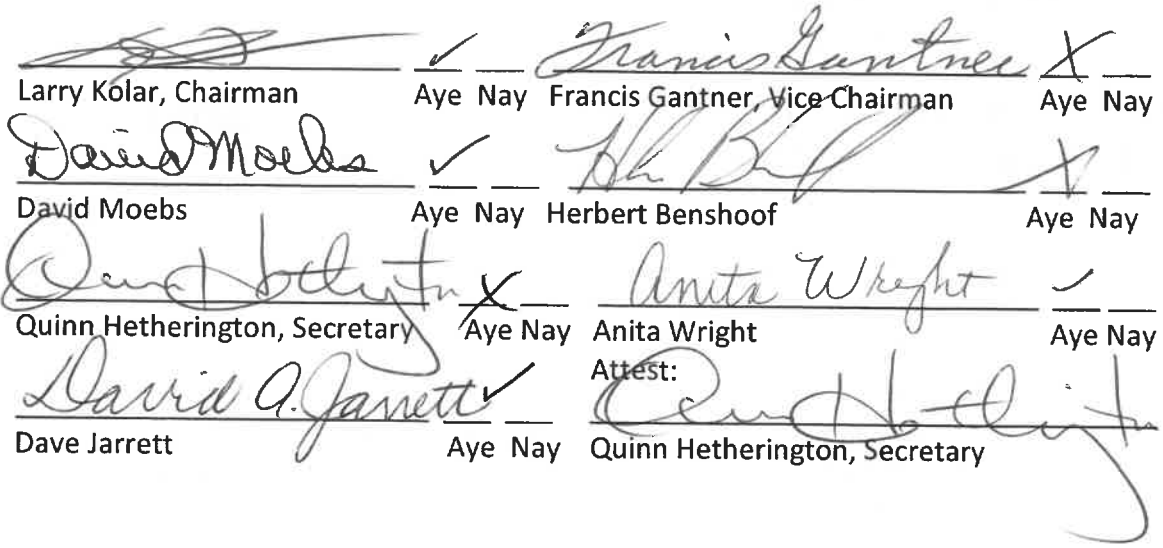 ✓ Francis Gantner X
Larry Kolar, Chairman Aye Nay Francis Gantner, Vice Chairman Aye Nay
David Moebs ✓ X
David Moebs Aye Nay Herbert Benshoof Aye Nay
X Anita Wright ✓
Quinn Hetherington, Secretary Aye Nay Anita Wright Aye Nay
Attest:
David A. Jarrett ✓
Dave Jarrett Aye Nay Quinn Hetherington, Secretary